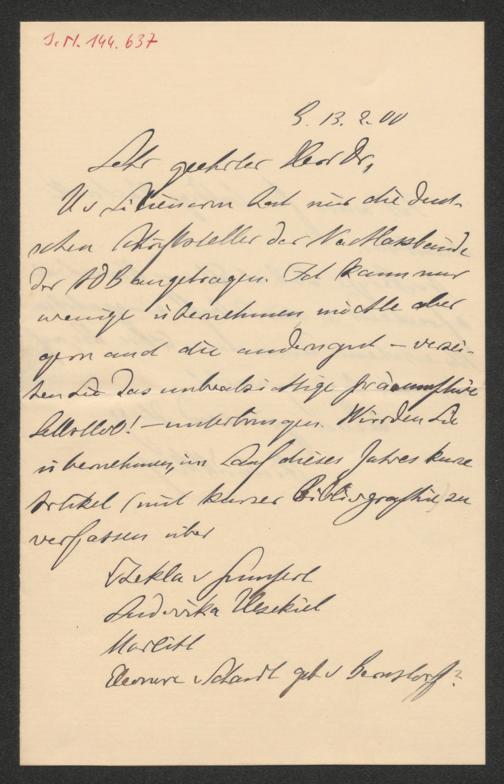 I. N. 144.637
G. 13. 2. 00
Sehr geehrter Herr Dr,
R v Liliencron hat mir die deut-
schen Schriftsteller der Nachlassbände
der ADB angetragen. Ich kann nur
wenige übernehmen möchte aber
gern auch die andern gut – verzei-
hen Sie das unbeabsichtige präsumptive
Selbstlob! – unterbringen. Würden Sie
übernehmen, im Lauf dieses Jahres kurze
Artikel (mit kurzer Bibliographie zu
verfassen über
Thekla v Gumpert
Ludovika Hesekiel
Marlitt
Eleonore v Schardt geb v Bernstorff?